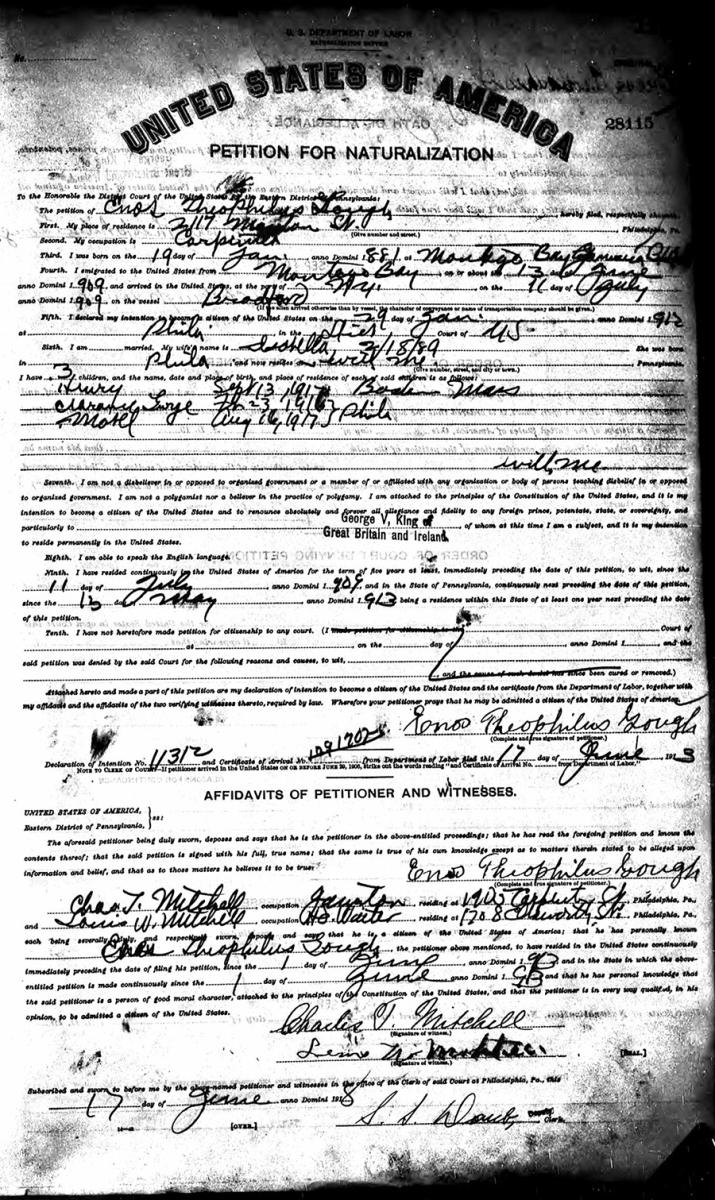 U. S. DEPARTMENT OF LABOR
NATURALIZATION SERVICE
No.
28115
UNITED STATES OF AMERICA
PETITION FOR NATURALIZATION
To the Honorable the District Court of the United States for the Eastern District of Pennsylvania:
The petition of Enos Theophilus Gough, hereby filed, respectfully showeth:
First. My place of residence is 2117 St. Philadelphia, Pa.
(Give number and street.)
Second. My occupation is Carpenter
Third. I was born on the 19 day of Jan. anno Domini 1881 at Montego Bay Jamaica
Fourth. I emigrated to the United States from Montego Bay on or about the 13 day of June
anno Domini 1909, and arrived in the United States, at the port of N.Y. on the 11 day of July
anno Domini 1909 on the vessel Bradford
(If the alien arrived otherwise than by vessel, the character of conveyance or name of transportation company should be given.)
Fifth. I declared my intention to become a citizen of the United States on the 29 day of Jan. anno Domini 1912
at Phila in the Dist Court of US
Sixth. I am married. My wife's name is Isabella 2/18/89 She was born
in Phila and now resides with me Pennsylvania.
(Give number, street, and city or town.)
I have 3 children, and the name, date and place of birth, and place of residence of each of said children is as follows:
Sept 13, Boston Mass
23, 191
Aug 16, 1917 Phila
with me
Seventh. I am not a disbeliever in or opposed to organized government or a member of or affiliated with any organization or body of persons teaching disbelief in or opposed
to organized government. I am not a polygamist nor a believer in the practice of polygamy. I am attached to the principles of the Constitution of the United States, and it is my
intention to become a citizen of the United States and to renounce absolutely and forever all allegiance and fidelity to any foreign prince, potentate, state, or sovereignty, and
particularly to George V, King of Great Britain and Ireland, of whom at this time I am a subject, and it is my intention
to reside permanently in the United States.
Eighth. I am able to speak the English language.
Ninth. I have resided continuously in the United States of America for the term of five years at least, immediately preceding the date of this petition, to wit, since the
11 day of July anno Domini 1909, and in the State of Pennsylvania, continuously next preceding the date of this petition,
since the 13 day of May anno Domini 1913 being a residence within this State of at least one year next preceding the date
of this petition.
Tenth. I have not heretofore made petition for citizenship to any court. (I made petition for citizenship to the Court of
at on the day of anno Domini 1 and the
said petition was denied by the said Court for the following reasons and causes, to wit,
and the cause of such denial has since been cured or removed.)
Attached hereto and made a part of this petition are my declaration of intention to become a citizen of the United States and the certificate from the Department of Labor, together with
my affidavit and the affidavits of the two verifying witnesses thereto, required by law. Wherefore your petitioner prays that he may be admitted a citizen of the United States of America
Enos Theophilus Gough
(Complete and true signature of petitioner.)
Declaration of Intention No. 11312 and Certificate of Arrival No. from Department of Labor filed this 17 day of June 191
NOTE TO CLERK OF COURT—If petitioner arrived in the United States ON OR BEFORE JUNE 29, 1906, strike out the words reading "and Certificate of Arrival No. from Department of Labor."
AFFIDAVITS OF PETITIONER AND WITNESSES.
UNITED STATES OF AMERICA,
Eastern District of Pennsylvania. ss:
The aforesaid petitioner being duly sworn, deposes and says that he is the petitioner in the above-entitled proceedings; that he has read the foregoing petition and knows the
contents thereof; that the said petition is signed with his full, true name; that the same is true of his own knowledge except as to matters therein stated to be alleged upon
information and belief, and that as to those matters he believes it to be true.
Enos Theophilus Gough
(Complete and true signature of petitioner.)
Chas. T. Mitchell occupation Janitor residing at 1903 Carpenter St. Philadelphia, Pa.
and Louis W. Mitchell occupation Waiter residing at 1708 Ellsworth St. Philadelphia, Pa.
each being severally, duly, and respectively sworn, deposes and says that he is a citizen of the United States of America; that he has personally known
Enos Theophilus Gough the petitioner above mentioned, to have resided in the United States continuously
immediately preceding the date of filing his petition, since the 1 day of June anno Domini 1913 and in the State in which the above-
entitled petition is made continuously since the 1 day of June anno Domini 1913 and that he has personal knowledge that
the said petitioner is a person of good moral character, attached to the principles of the Constitution of the United States, and that the petitioner is in every way qualified, in his
opinion, to be admitted a citizen of the United States.
Charles T. Mitchell
(Signature of witness.)
(Signature of witness.)
[SEAL.]
Subscribed and sworn to before me by the above-named petitioner and witnesses in the office of the Clerk of said Court at Philadelphia, Pa., this
17 day of June anno Domini 191
Clerk.
[OVER.]